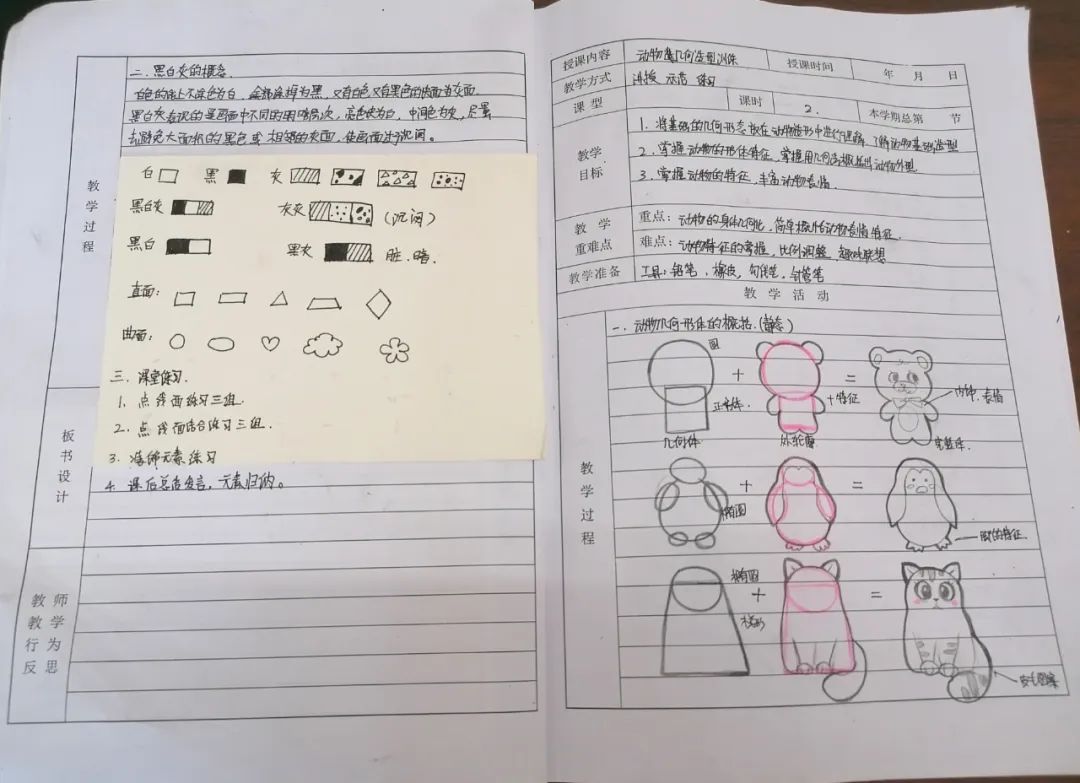 教学过程
二、黑白灰的概念.
白色的纸上不涂色为白，全部涂掉为黑，又有白色又有黑色的画面为灰面.
黑白灰表现的是画面中不同的明暗层次，亮色块为白，中间色为灰，尽量
去避免大面积的黑色或相邻的灰面，使画面过于沉闷。
白 黑 灰
黑白灰 灰灰 (沉闷)
黑白 黑灰 脏.暗.
直面：
曲面：
三、课堂练习.
1. 点 线 面 练习三组.
2. 点 线 面结合练习三组.
3. 元素练习
4. 课后总结发言，元素归纳。
板书设计
教师
教学
行为
反思
授课内容 动物几何造型训练 授课时间 年 月 日
教学方式 讲授 示范 练习
课型 课时 2. 本学期总第 节
教学目标
1. 将基础的几何形态放在动物造形中进行理解，了解动物基础造型
2. 掌握动物的形体特征，掌握用几何形概括出动物外型
3. 掌握动物的特征，丰富动物表情.
教学
重难点
重点：动物的身体几何化，简单概括动物表情特征.
难点：动物特征的掌握，比例调整，趣味联想
教学准备 工具：铅笔，橡皮，勾线笔，针管笔
教学活动
教学过程
一、动物几何形体的概括.(静态)
圆
正方体.
+ = +特征 内饰.表情
几何体 外轮廓 完整体.
椭圆
+ = 脚的特征.
椭圆
梯形
+ =